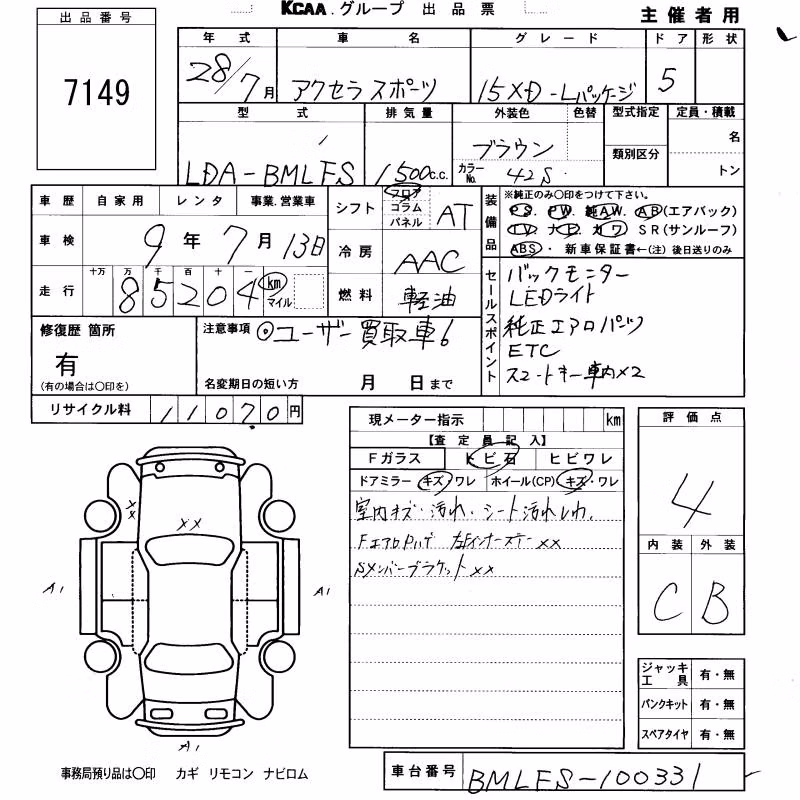 出品番号
7149
KCAA.グループ 出品票
主催者用
年式 車名 グレード ドア 形状
28/7月 アクセラスポーツ 15XD-Lパッケージ 5
型式 排気量 外装色 色替 型式指定 定員・積載
LDA-BMLFS 1500c.c. ブラウン 名
カラーNo. 42S 類別区分 トン
車歴 自家用 レンタ 事業.営業車
車検 9年7月13日
走行 十万 万 千 百 十 一
85204 km マイル
シフト フロア コラム パネル AT
冷房 AAC
燃料 軽油
装備品
※純正のみ○印をつけて下さい。
PS. PW. 純AW. AB(エアバック)
TV. ナビ. カワ SR(サンルーフ)
ABS・新車保証書←(注)後日送りのみ
セールスポイント
バックモニター
LEDライト
純正エアロパーツ
ETC
スマートキー車内×2
修復歴 箇所
有
(有の場合は○印を)
注意事項 ◎ユーザー買取車
名変期日の短い方 月 日まで
リサイクル料 11070円
現メーター指示 km
【査定員記入】
Fガラス トビ石 ヒビワレ
ドアミラー キズ・ワレ ホイール(CP) キズ・ワレ
室内キズ・汚れ・シート汚れしわ.
SメンバーブラケットXX
評価点
4
内装 外装
C B
XX
XX
A1
A1
A1
ジャッキ工具 有・無
パンクキット 有・無
スペアタイヤ 有・無
事務局預り品は○印 カギ リモコン ナビロム
車台番号 BMLFS-100331